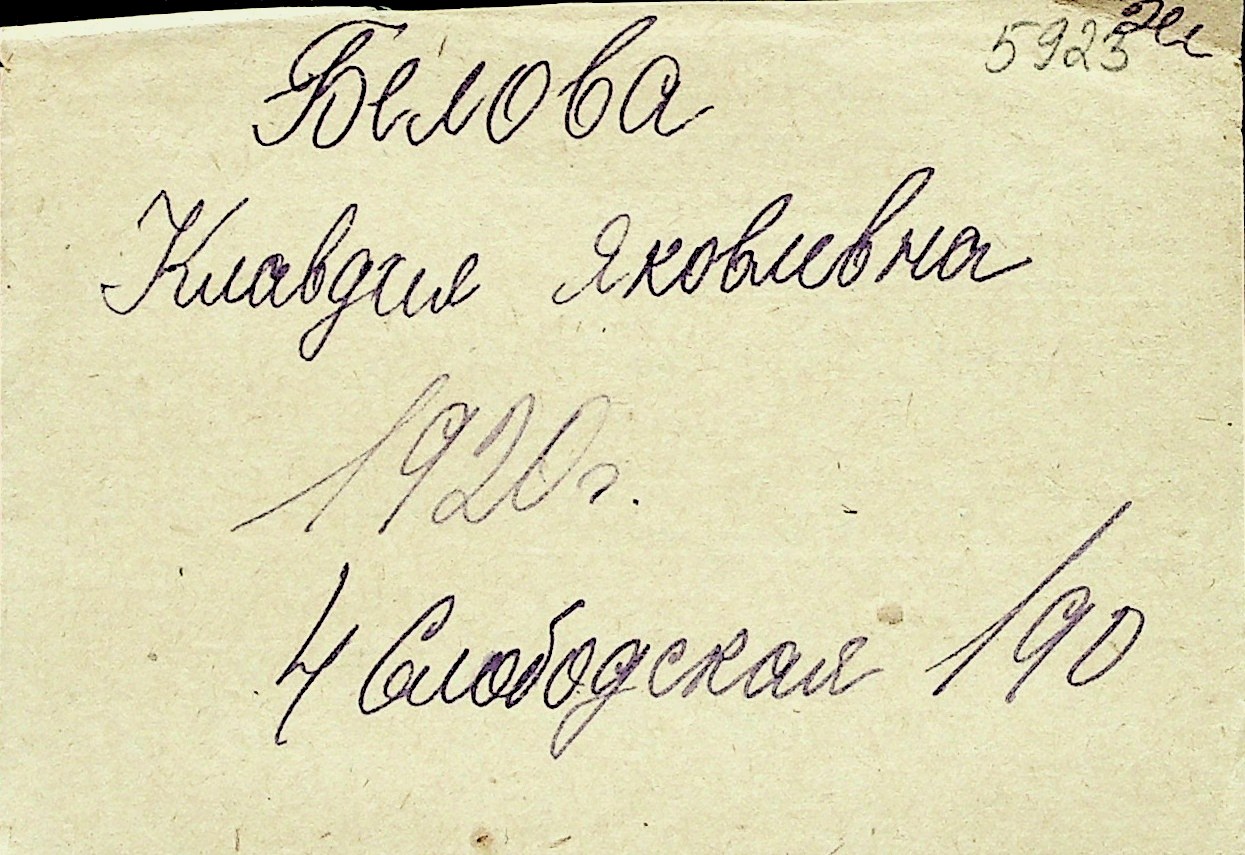 5923
Белова
Клавдия Яковлевна
1920 г.
4 Слободская 190